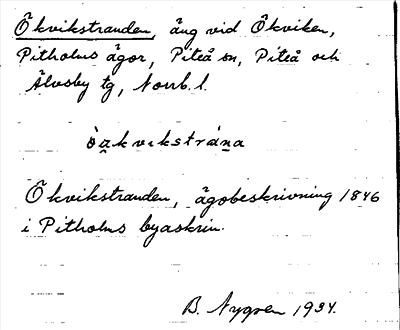 Ökvikstranden, äng vid Ökviken,
Pitholms ägor, Piteå sn, Piteå och
Älvsby tg, Norrb. l.
òa̱kvıkstráṉa
Ökvikstranden, ägobeskrivning 1846
i Pitholms byaskrin.
B. Nygren 1934.